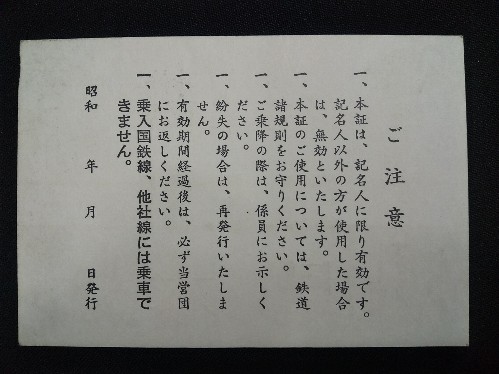 ご注意
一、本証は、記名人に限り有効です。
記名人以外の方が使用した場合
は、無効といたします。
一、本証のご使用については、鉄道
諸規則をお守りください。
一、ご乗降の際は、係員にお示しく
ださい。
一、紛失の場合は、再発行いたしま
せん。
一、有効期間経過後は、必ず当営団
にお返しください。
一、乗入国鉄線、他社線には乗車で
きません。
昭和　年　月　日発行